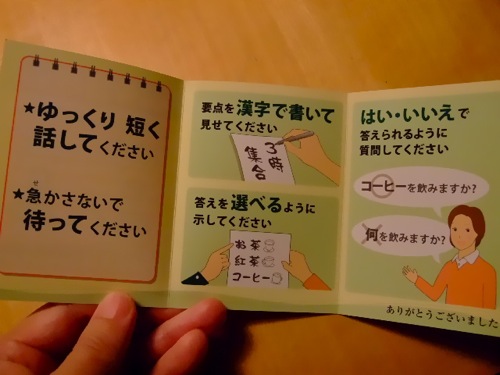 ★ゆっくり 短く
話してください
★急かさないで
せ
待ってください
要点を漢字で書いて
見せてください
3時
集合
答えを選べるように
示してください
お茶
紅茶
コーヒー
はい・いいえで
答えられるように
質問してください
コーヒーを飲みますか?
何を飲みますか?
ありがとうございました